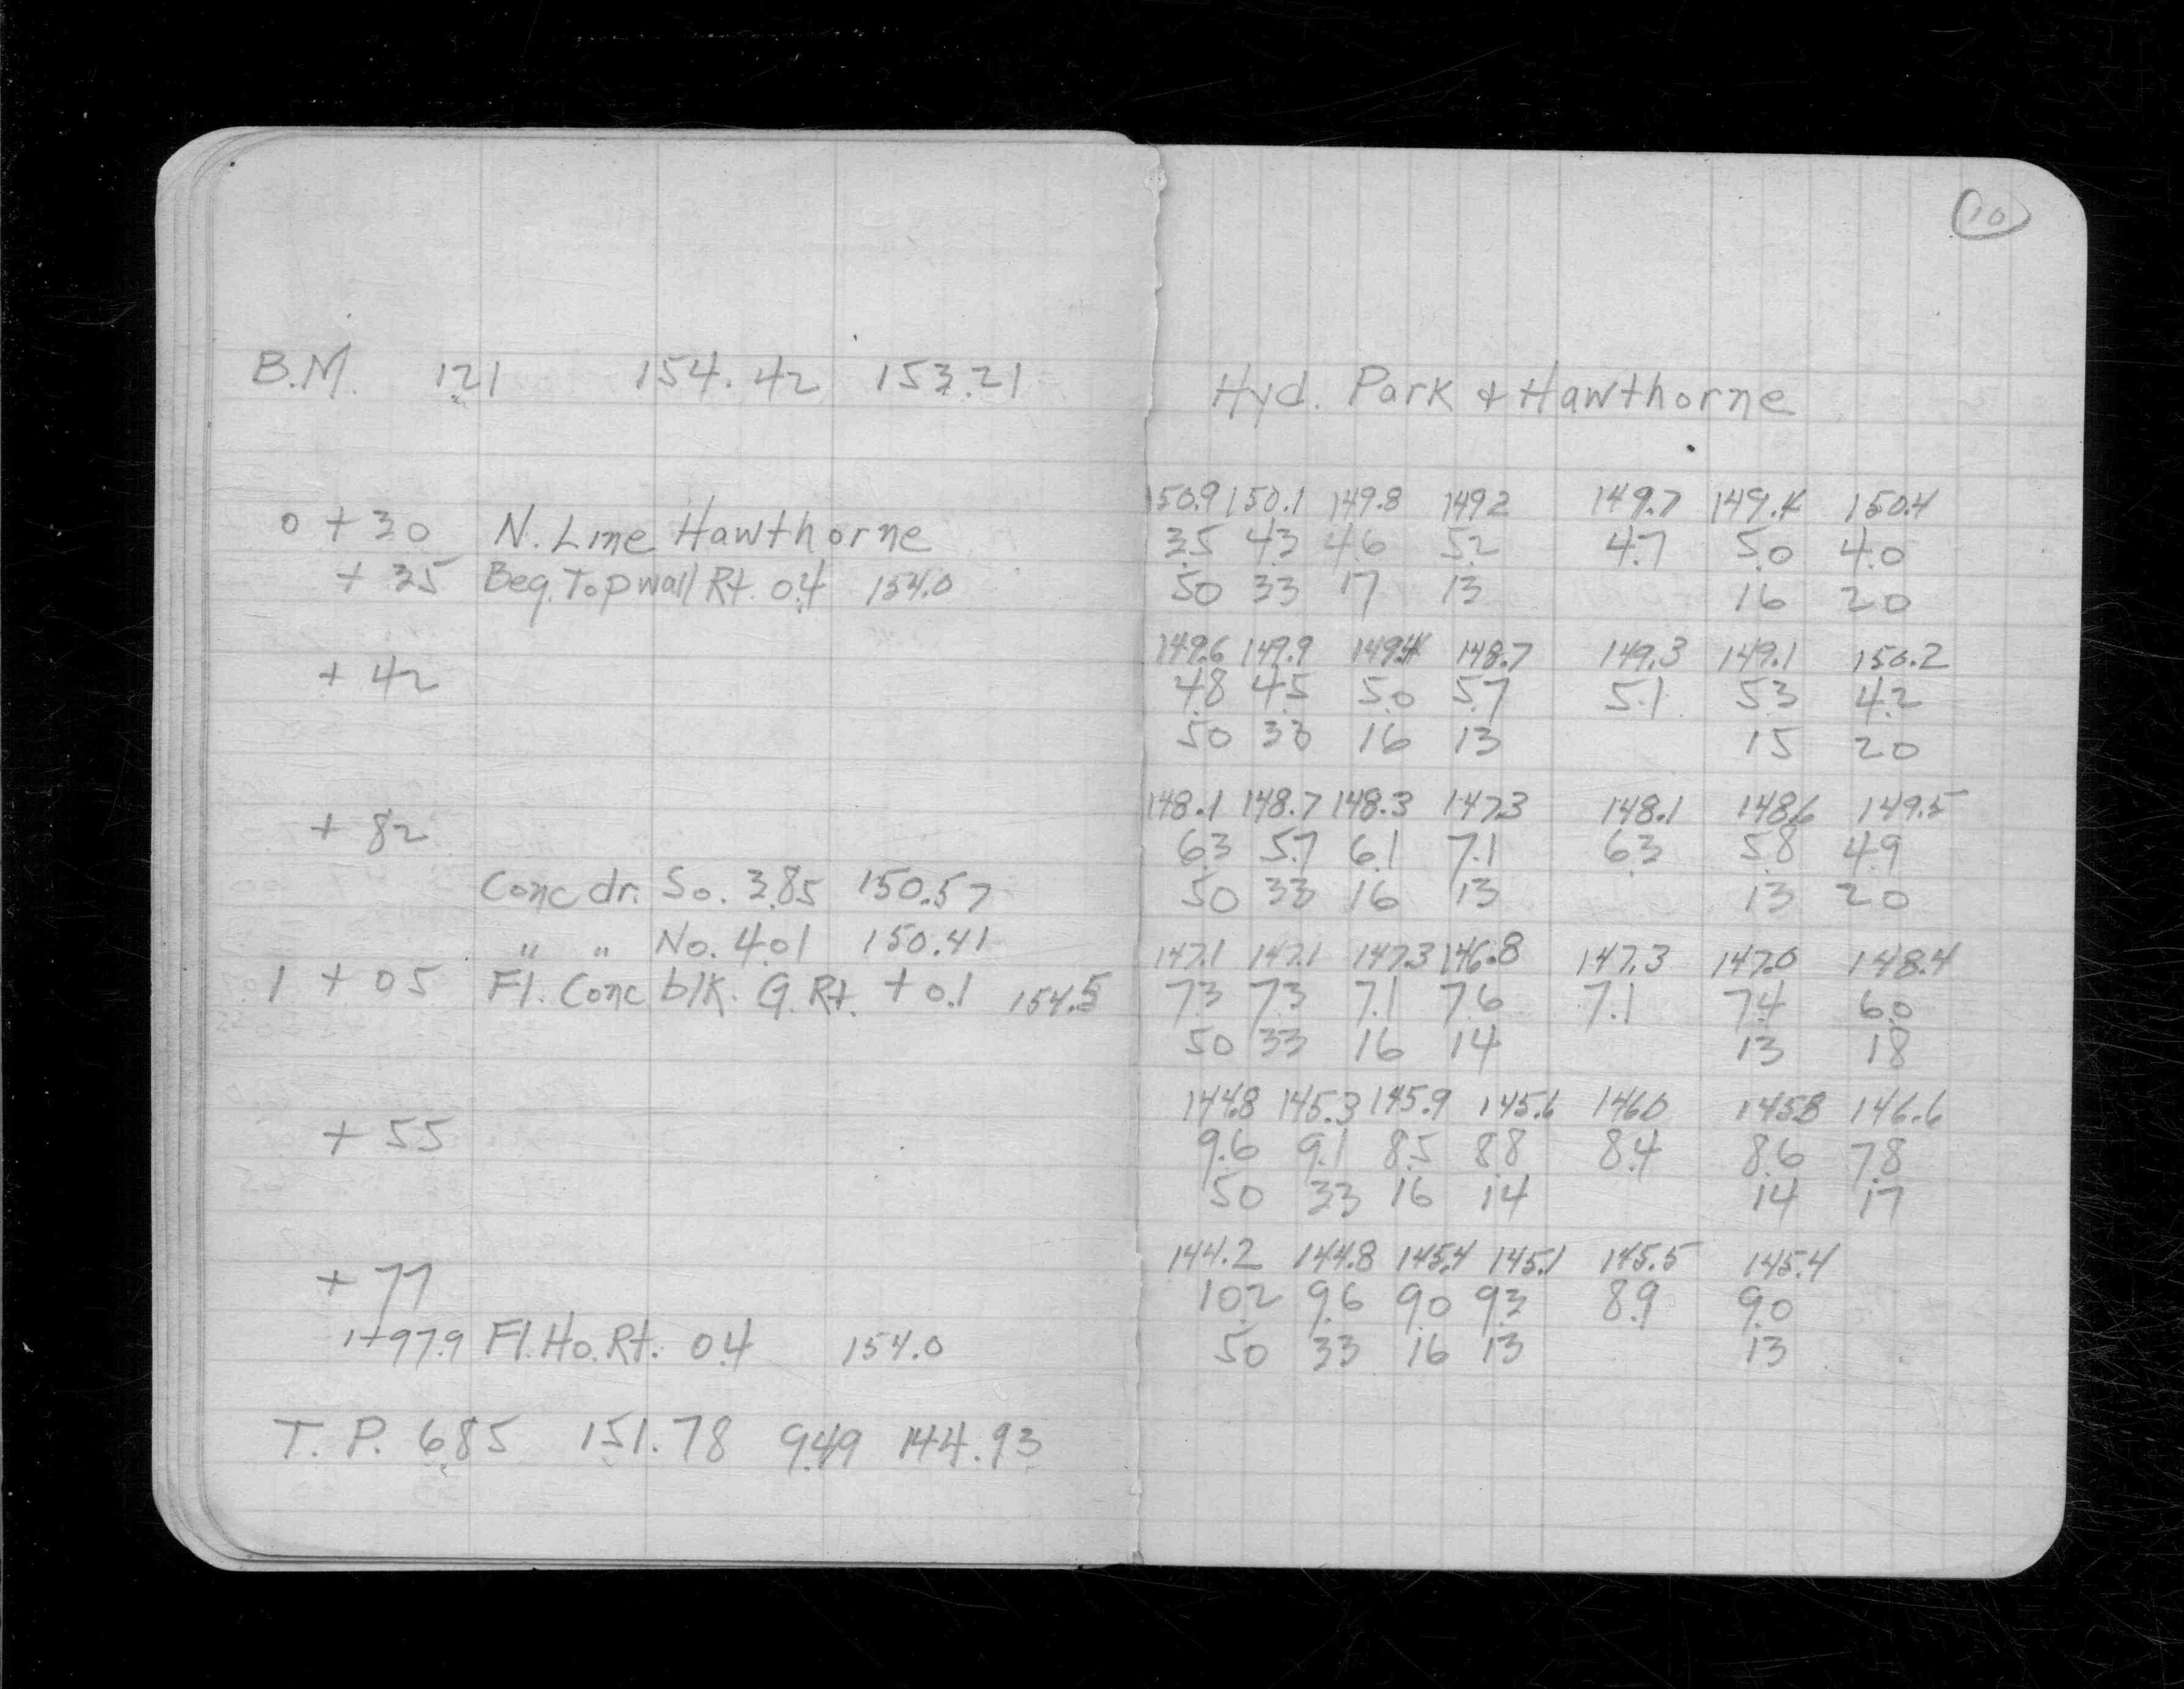 10
B.M. 1.21 154.42 153.21
Hyd. Park & Hawthorne
150.9 150.1 149.8 149.2 149.7 149.4 150.4
0 + 30 N. Line Hawthorne
3.5 4.3 4.6 5.2 4.7 5.0 4.0
+ 35 Beg. Top wall Rt. 0.4 154.0
50 33 17 13 16 20
149.6 149.9 149.4 148.7 149.3 149.1 150.2
+ 42
4.8 4.5 5.0 5.7 5.1 5.3 4.2
50 33 16 13 15 20
148.1 148.7 148.3 147.3 148.1 148.6 149.5
+ 82
6.3 5.7 6.1 7.1 6.3 5.8 4.9
Conc dr. So. 3.85 150.57
50 33 16 13 13 20
" " No. 4.01 150.41
147.1 147.1 147.3 146.8 147.3 147.0 148.4
1 + 05 Fl. Conc blk. G. Rt. + 0.1 154.5
7.3 7.3 7.1 7.6 7.1 7.4 6.0
50 33 16 14 13 18
144.8 145.3 145.9 145.6 146.0 145.8 146.6
+ 55
9.6 9.1 8.5 8.8 8.4 8.6 7.8
50 33 16 14 14 17
144.2 144.8 145.4 145.1 145.5 145.4
+ 77
10.2 9.6 9.0 9.3 8.9 9.0
1+97.9 Fl. Ho. Rt. 0.4 154.0
50 33 16 13 13
T. P. 6.85 151.78 9.49 144.93